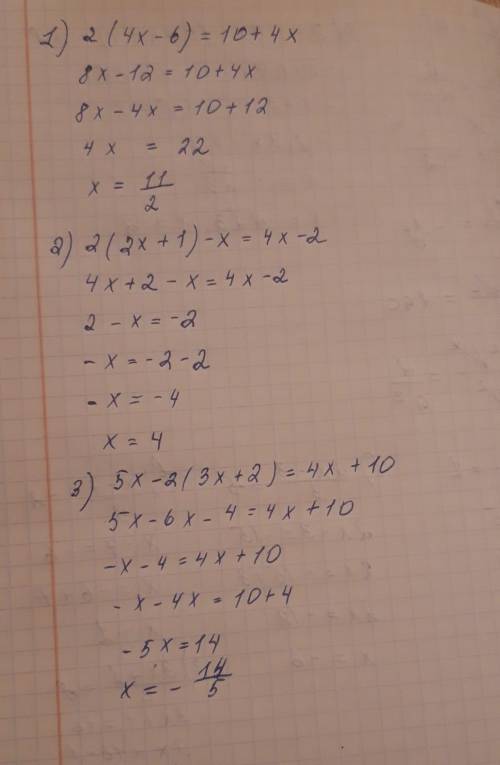 1) 2(4x-6)=10+4x
8x-12=10+4x
8x-4x=10+12
4x = 22
x = 11/2
2) 2(2x+1)-x=4x-2
4x+2-x=4x-2
2-x=-2
-x=-2-2
-x=-4
x=4
3) 5x-2(3x+2)=4x+10
5x-6x-4=4x+10
-x-4=4x+10
-x-4x=10+4
-5x=14
x=-14/5